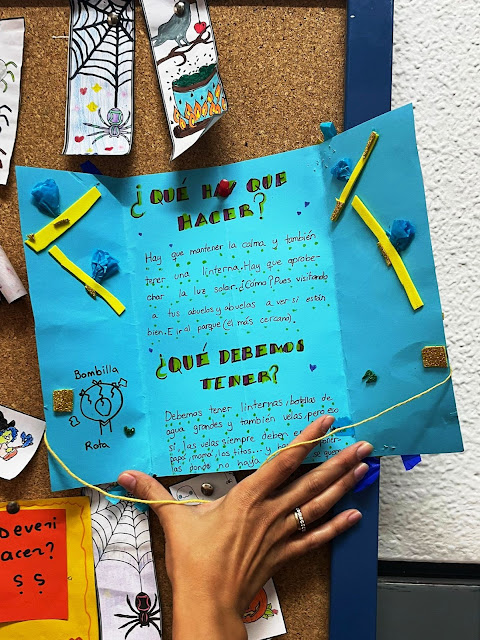 ¿QUÉ HAY QUE
HACER?
Hay que mantener la calma y también
tener una linterna. Hay que aprobe-
char la luz solar. ¿Cómo? Pues visitando
a tus abuelos y abuelas a ver si están
bien. E ir al parque (el más cercano).
¿QUÉ DEBEMOS
TENER?
Debemos tener linternas, botellas de
agua grandes y también velas, pero eso
sí, las velas siempre deben
papá, mamá, los titos... y
las donde no haya
se que
Bombilla
Rota